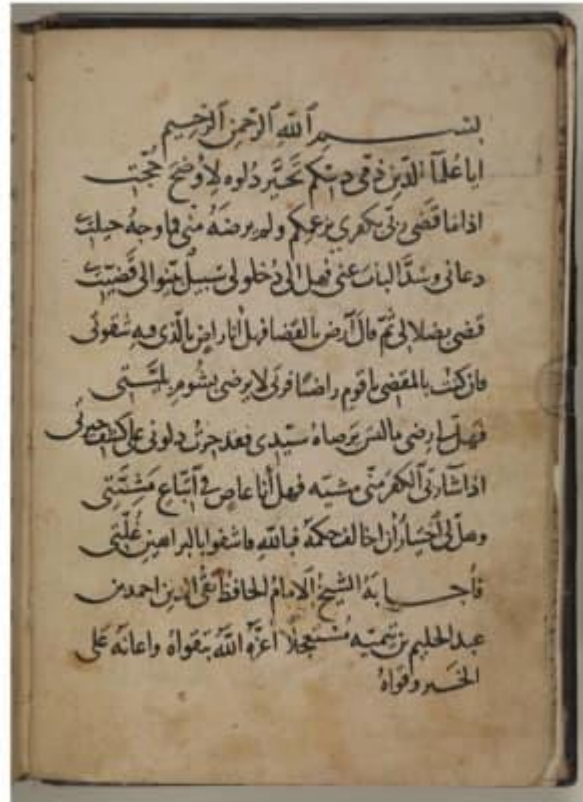 بسم الله الرحمن الرحيم
ايا علماء الدين ذمى دينكم تحير دلوه لاوضح حجت
اذا ما قضى ربى بكفرى بزعمكم ولم يرضه منى فما وجه حيلت
دعانى وسد الباب عنى فهل الى دخولى سبيل بينوا لى قضيت
قضى بضلالى ثم قال ارض بالقضا فهل أنا راض بالذى فيه شقوتى
فان كنت بالمقضى يا قوم راضيا فربى لا يرضى بشوم بليتى
فهل لى رضى ما ليس يرضاه سيدى فقد حرت دلونى على كشف حيرتى
اذا شا ربى الكفر منى مشيه فهل أنا عاص فى اتباع مشيتى
وهل لى اختيار ان اخالف حكمه فبالله فاشفوا بالبراهين غلتى
فأجابه الشيخ الامام الحافظ تقى الدين احمد بن
عبد الحليم بن تيميه مستعجلا أعزه الله بتقواه واعانه على
الخير وقواه